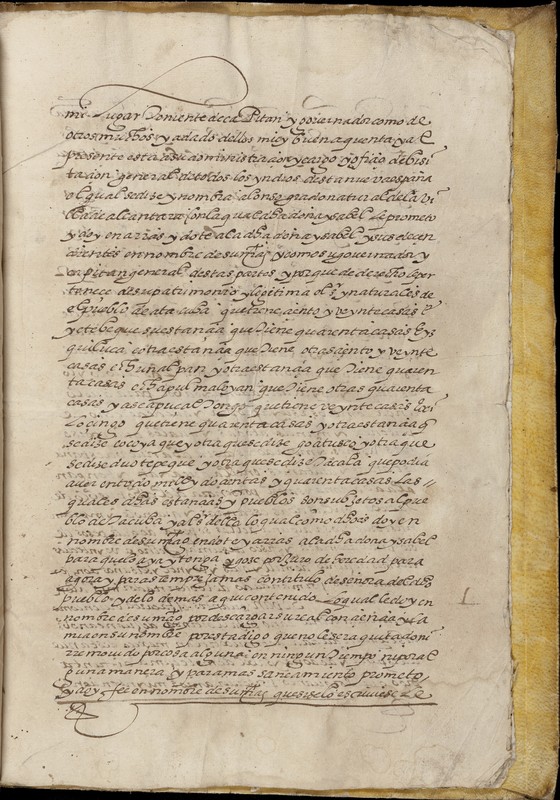 mi lugar teniente de capitan y governador como de
otros muchos y adads dellos muy buena quenta y al
presente esta administrador y cargo y oficio de bisi
tador general de todos los yndios desta nueva españa
el qual se dize y nombra alonso grado natural de la vi
lla de alcantara con la qual dha doña ysabel le prometo
y doy en arras y dote a la dha doña ysabel y sus decen
dientes en nombre de su mag como su governador y
capitan general destas partes y porque de derecho le per
tenece de su patrimonio y legitima el señorio y naturales de
el pueblo de que tiene ciento y veynte casas
y etebeque ques estançia que tiene quarenta casas
quiluca otra estançia que tiene otras ciento y veynte
casas y otra estançia que tiene quaren
ta casas e chapulmaloyan que tiene otras quarenta
casas y ascapucaltongo que tiene veynte casas
locingo que tiene quarenta casas y otra estançia q
se dize ocoyaque y otra que se dize y otra que
se dize duotepeque y otra que se dize tacala que podia
aver en todo mill y dozientas y quarenta casas las
quales dhas estançias y pueblos son subjetos al pue
blo de tacuba y al señor della lo qual como dho es doy en
nombre de su mag en dote y arras a la dha doña ysabel
para que lo aya y tenga y goze por juro de heredad para
agora y para siempre jamas con titulo de señora del dho
pueblo y de lo demas aqui contenido lo qual le doy en
nombre de su mag por descargar su real conçiençia y la
mia en su nombre por esta digo que no le sera quitado ni
rremovido por cosa alguna en ningun tiempo ni por al
guna manera y para mas saneamiento prometo
y doy fee en nombre de su mag que si se lo escriviese le